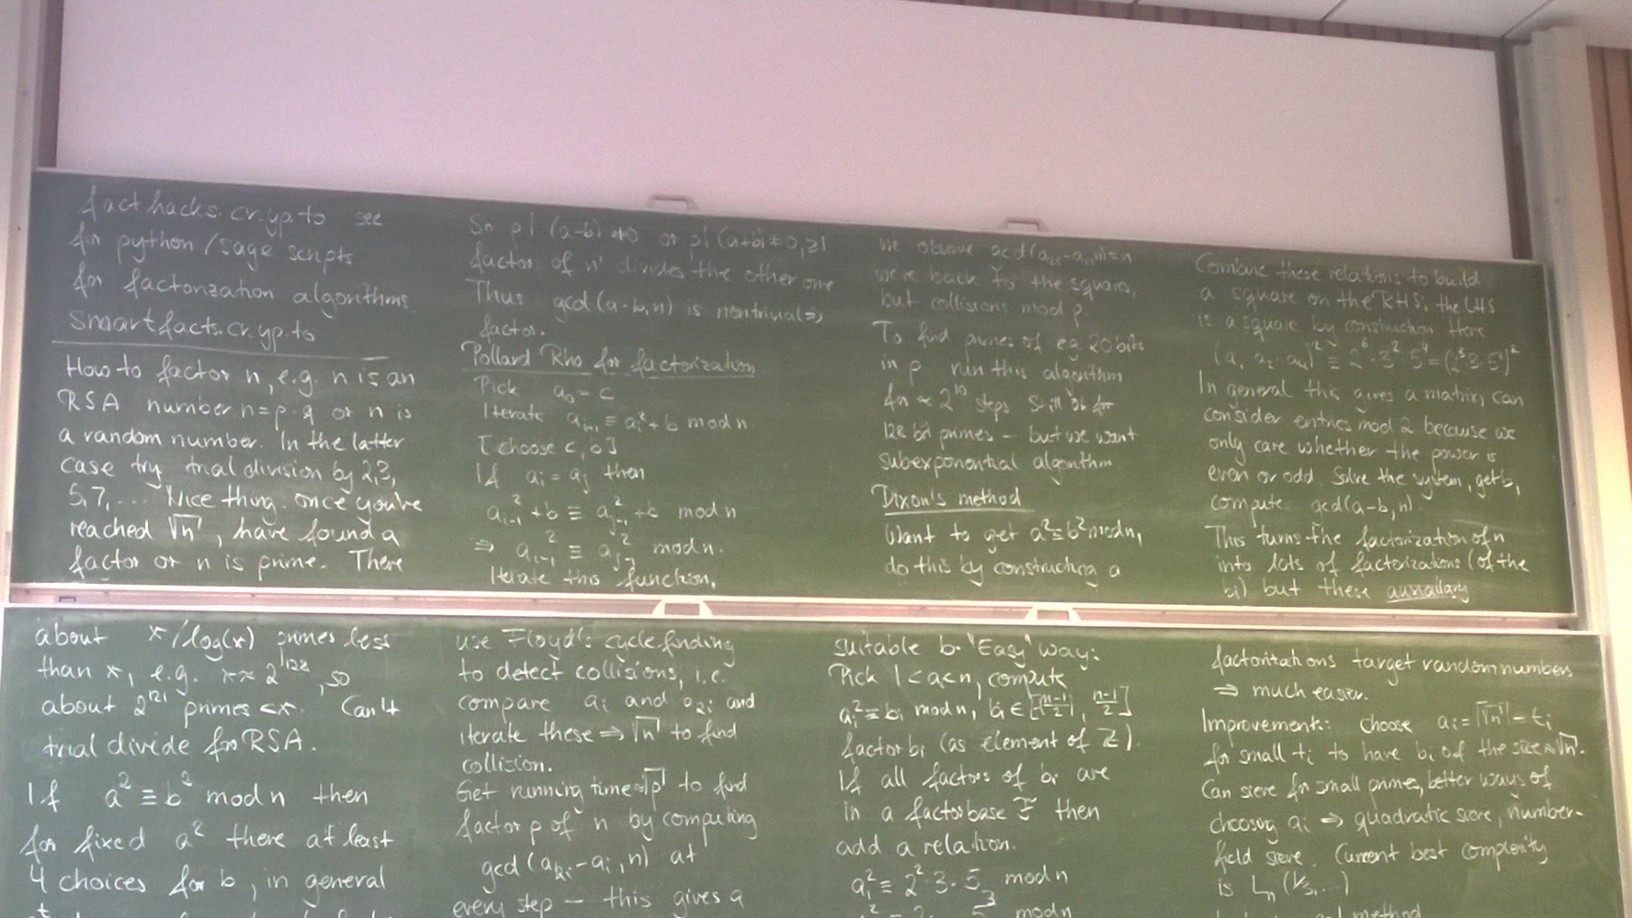 fact hacks.cr.yp.to see
for python/sage scripts
for factorization algorithms.
Smartfacts.cr.yp.to
How to factor n, e.g. n is an
RSA number n=p·q or n is
a random number. In the latter
case try trial division by 2,3,
5,7,... Nice thing: once you're
reached √n, have found a
factor or n is prime. There
about x/log(x) primes less
than x, e.g. x≈2^128, so
about 2^121 primes <x. Can't
trial divide for RSA.
If a² ≡ b² mod n then
for fixed a² there at least
4 choices for b, in general
So p | (a-b) ≠0 or p | (a+b) ≠0, ≥1
factor of n' divides the other one
Thus gcd(a-b,n) is nontrivial
factor.
Pollard Rho for factorization
Pick a₀ = c
Iterate a_{i+1} ≡ a_i² + b mod n
[choose c, b]
If a_i = a_j then
a_{i-1}² + b ≡ a_{j-1}² + b mod n
⇒ a_{i-1}² ≡ a_{j-1}² mod n.
Iterate this function,
use Floyd's cycle finding
to detect collisions, i.e.
compare a_i and a_{2i} and
iterate these ⇒ √n to find
collision.
Get running time ≈√p to find
factor p of n by computing
gcd(a_{2i}-a_i,n) at
every step – this gives a
We observe gcd(a_{2i}-a_i,n)=n
we're back to the square,
but collisions mod p.
To find primes of e.g. 20 bits
in p run this algorithm
for ≈ 2^10 steps. Still ok for
128 bit primes – but we want
subexponential algorithm
Dixon's method
Want to get a²≡b² mod n,
do this by constructing a
suitable b. "Easy" way:
Pick 1<a<n, compute
a_i² ≡ b_i mod n, b_i ∈ [-(n-1)/2, (n-1)/2]
factor b_i (as element of Z).
If all factors of b_i are
in a factorbase F then
add a relation.
a₁² ≡ 2²·3·5 mod n
mod n
Combine these relations to build
a square on the RHS; the LHS
is a square by construction. Here
(a₁ a₂ a₄)² ≡ 2⁶·3²·5⁴ = (2³·3·5²)²
In general this gives a matrix, can
consider entries mod 2 because we
only care whether the power is
even or odd. Solve the system, get b,
compute gcd(a-b,n).
This turns the factorization of n
into lots of factorizations (of the
b_i) but these auxiallary
factoritations target random numbers
⇒ much easier.
Improvements: choose a_i = ⌈√n⌉ - t_i
for small t_i to have b_i of the size ≈√n.
Can sieve for small primes, better ways of
choosing a_i → quadratic sieve, number-
field sieve. Current best complexity
is L_n(1/3,...)
method